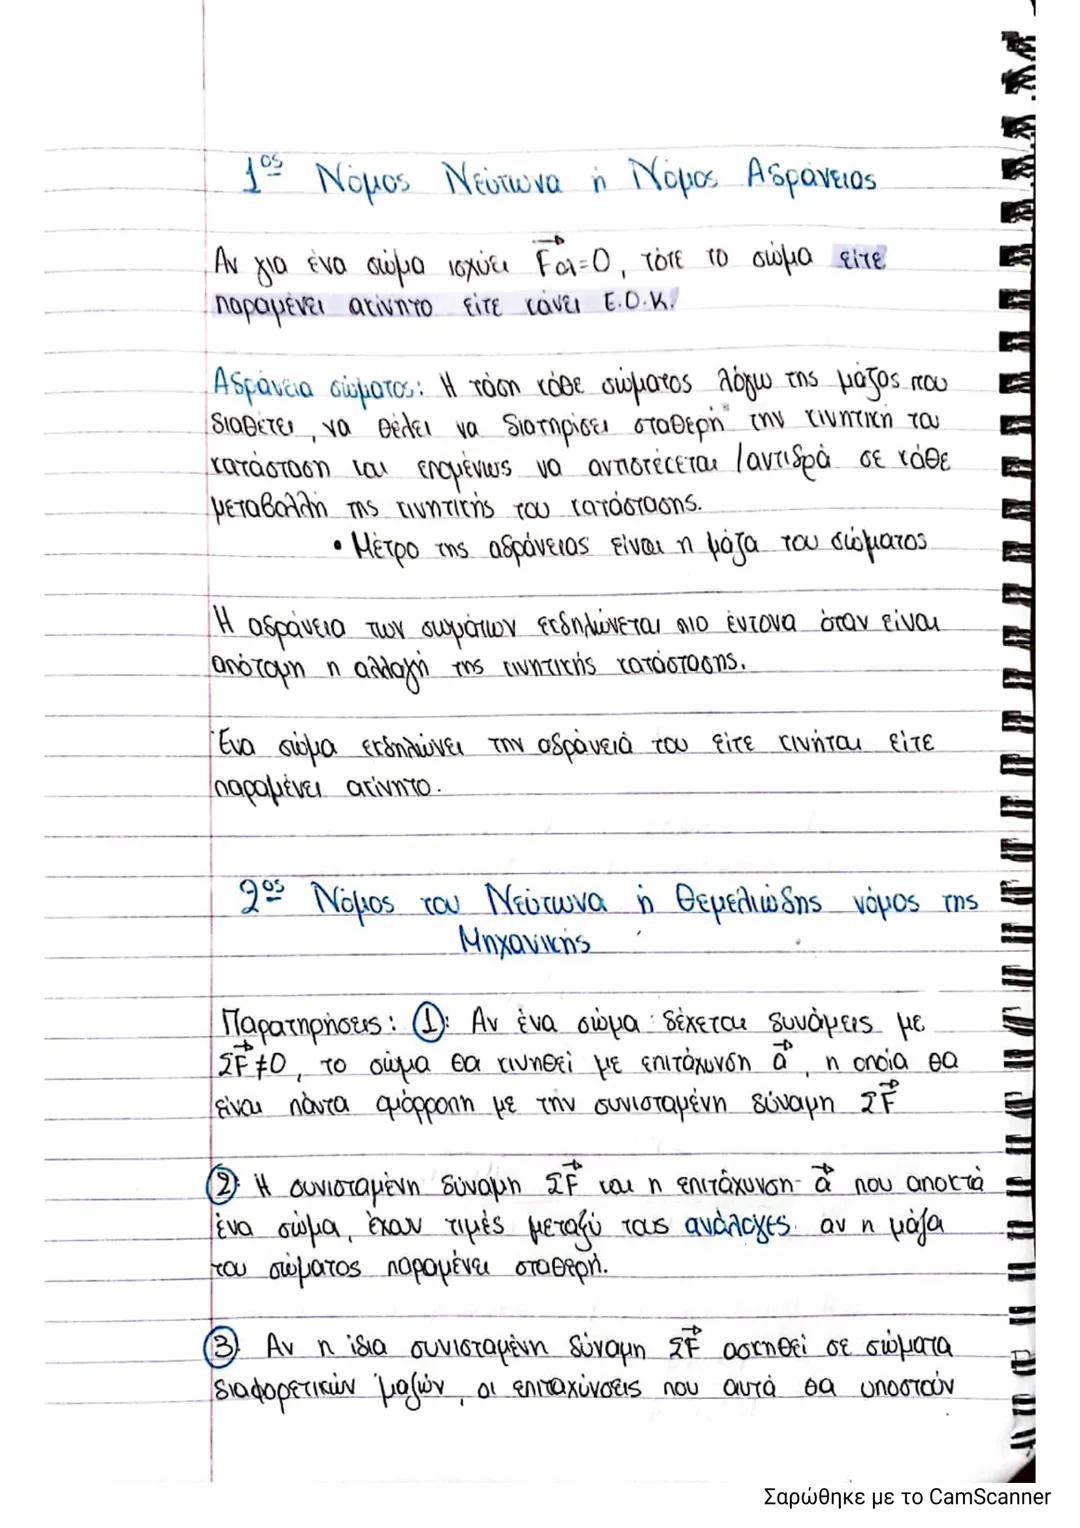 1ος Νόμος Νεύτωνα ή Νόμος Αδράνειας
Αν για ένα σώμα ισχύει Fολ=0, τότε το σώμα είτε
παραμένει ακίνητο είτε κάνει Ε.Ο.Κ.
Αδράνεια σώματος: Η τάση κάθε σώματος λόγω της μάζας που
διαθέτει, να θέλει να διατηρίσει σταθερή την κινητική του
κατάσταση και επομένως να αντιστέκεται /αντιδρά σε κάθε
μεταβολλή της κινητικής του κατάστασης.
• Μέτρο της αδράνειας είναι η μάζα του σώματος
Η αδράνεια των σωμάτων εκδηλώνεται πιο έντονα όταν είναι
απότομη η αλλαγή της κινητικής κατάστασης.
Ένα σώμα εκδηλώνει την αδράνειά του είτε κινήται είτε
παραμένει ακίνητο.
2ος Νόμος του Νεύτωνα ή Θεμελιώδης νόμος της
Μηχανικής
Παρατηρήσεις: ①: Αν ένα σώμα δέχεται δυνάμεις με
ΣF⃗≠0, το σώμα θα κινηθεί με επιτάχυνση α⃗, η οποία θα
είναι πάντα ομόρροπη με την συνισταμένη δύναμη ΣF⃗
②: Η συνισταμένη δύναμη ΣF⃗ και η επιτάχυνση α⃗ που αποκτά
ένα σώμα, έχουν τιμές μεταξύ τους ανάλογες αν η μάζα
του σώματος παραμένει σταθερή.
③ Αν η ίδια συνισταμένη δύναμη ΣF⃗ ασκηθεί σε σώματα
διαφορετικών μαζών, οι επιταχύνσεις που αυτά θα υποστούν
Σαρώθηκε με το CamScanner